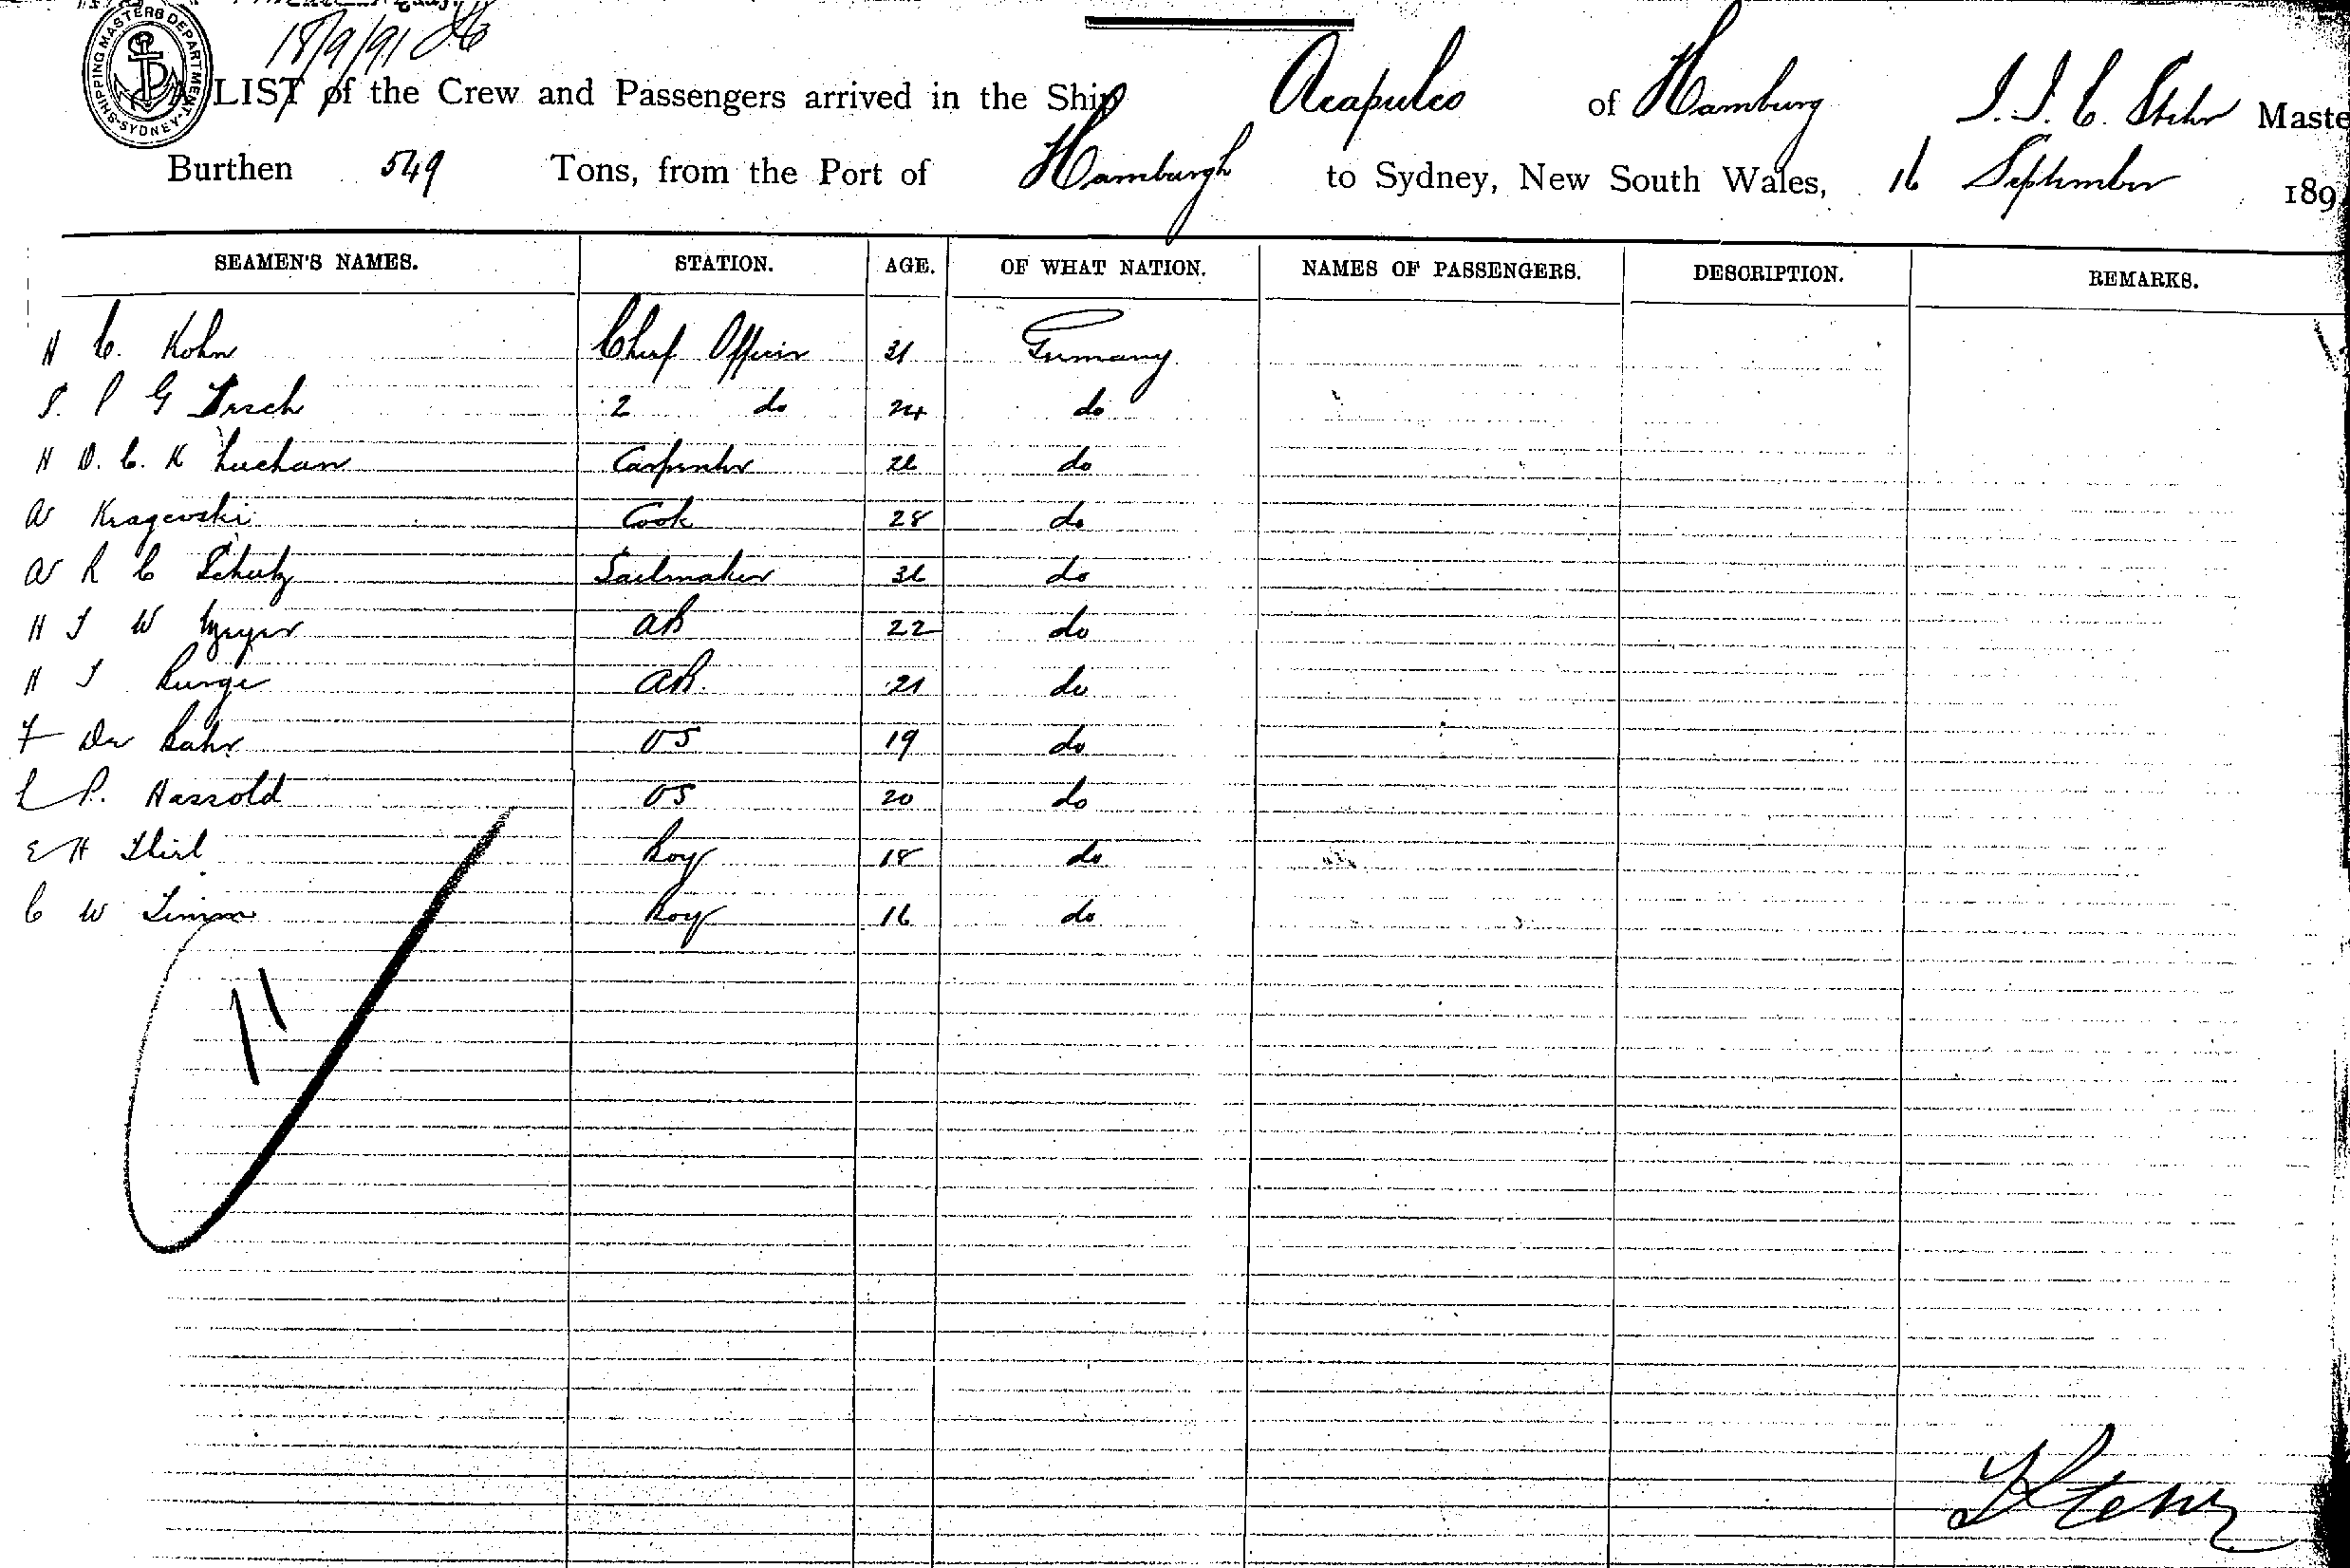 SHIPPING MASTERS DEPARTMENT SYDNEY
18/9/91
A LIST of the Crew and Passengers arrived in the Ship Acapulco of Hamburg J. J. C. Stehr Maste
Burthen 549 Tons, from the Port of Hamburgh to Sydney, New South Wales, 16 September 189
SEAMEN'S NAMES. STATION. AGE. OF WHAT NATION. NAMES OF PASSENGERS. DESCRIPTION. REMARKS.
H C. Kohn Chief Officer 31 Germany
J. P G 2 do 24 do
H D. C. K Luchan Carpenter 26 do
W Kragevski Cook 28 do
W R C Schutz Sailmaker 36 do
H J W Meyer AB 22 do
H J Runge AB. 21 do
F Bahr OS 19 do
L P. Hassold OS 20 do
E H Thiel Boy 18 do
C W Timm Boy 16 do
11
Stehr